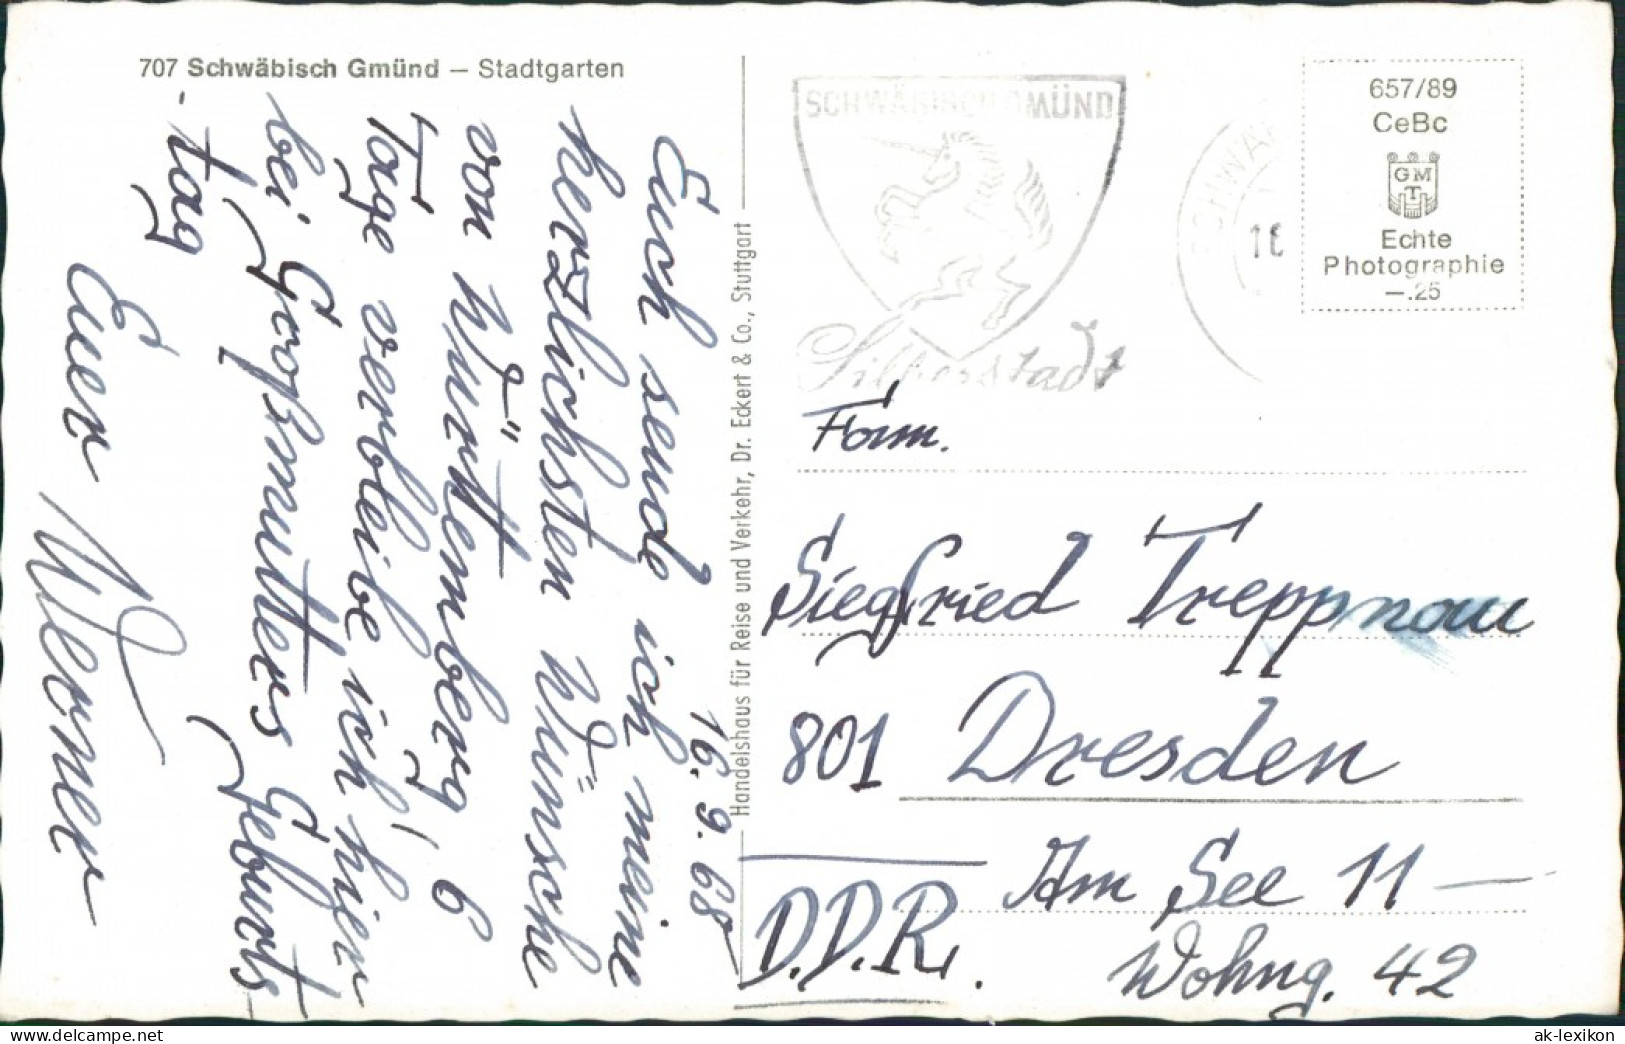 707 Schwäbisch Gmünd – Stadtgarten
16. 9. 68
Euch sende ich meine
herzlichsten Wünsche
von Württemberg, 6
Tage verbleibe ich hier
bei Großmutters Geburts-
-tag
Euer Werner
Handelshaus für Reise und Verkehr, Dr. Eckert & Co., Stuttgart
SCHWÄBISCH GMÜND
Silberstadt
SCHWÄ
16
657/89
CeBc
GM
T
Echte
Photographie
—.25
Fam.
Siegfried Treppnau
801 Dresden
Am See 11 —
D.D.R.
Wohng. 42
delcampe.net
ak-lexikon